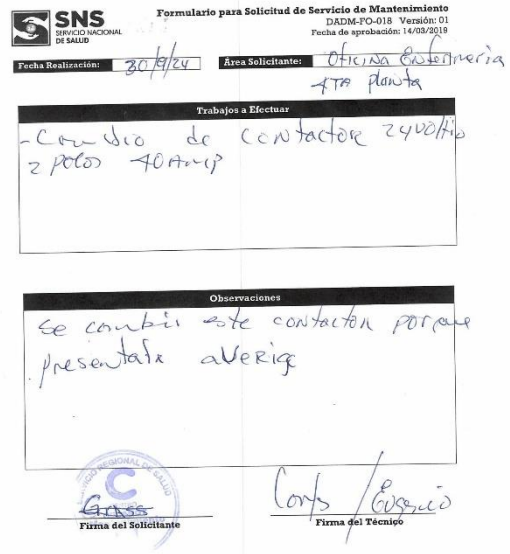 SNS
SERVICIO NACIONAL
DE SALUD
Formulario para Solicitud de Servicio de Mantenimiento
DADM-FO-018 Versión: 01
Fecha de aprobación: 14/03/2019
Fecha Realización: 30/9/24
Área Solicitante: Oficina Enfermeria
4TA planta
Trabajos a Efectuar
- Cambio de contactor 24voltio
2 polos 40 Amp
Observaciones
Se cambio este contactor porque
presentaba averia
REGIONAL DE SALUD
Firma del Solicitante
Eugenio
Firma del Técnico